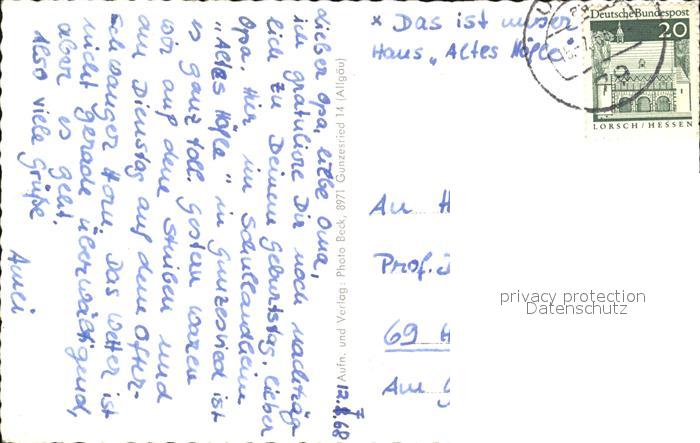 12.7.68
Lieber Opa, liebe Oma,
ich gratuliere Dir noch nachträg
lich zu Deinem Geburtstag, lieber
Opa. Hier im Schullandheim
"Altes Höfle" in Gunzesried ist
es ganz toll. Gestern waren
wir auf dem Stuiben und
am Dienstag auf dem Ofter-
schwanger Horn. Das Wetter ist
nicht gerade überwältigend,
aber es geht.
Also viele Grüße
Aufn. und Verlag: Photo Beck, 8971 Gunzesried 14 (Allgäu)
x Das ist unser
Haus „Altes Höfle"
Deutsche Bundespost
20
LORSCH/HESSEN
An H
Prof. D
69 H
Am G
privacy protection
Datenschutz